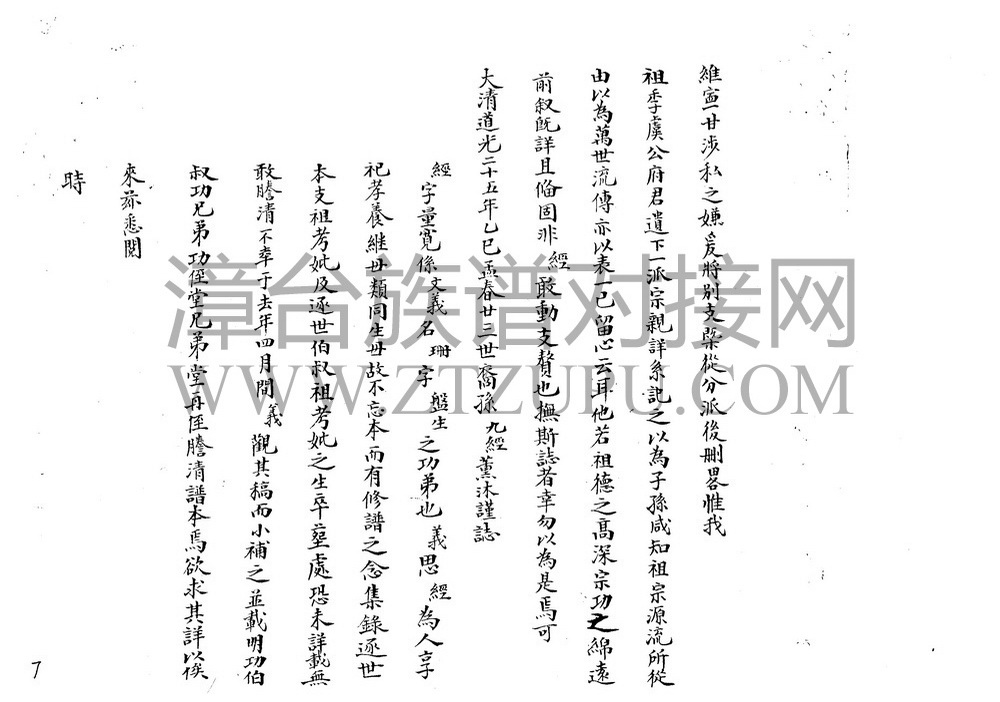 維寔廿涉私之嫌爰將別支槩從分派後刪畧惟我
祖季虞公府君遺下一派宗親詳系記之以為子孫咸知祖宗源流所從
由以為萬世流傳亦以表一己留心云耳他若祖德之高深宗功之綿遠
前叙既詳且偹固非經敢動支贅也撫斯誌者幸勿以為是焉可
大清道光二十五年乙巳孟春廿二世裔孫九經薰沐謹誌
經字量寬係文義名珊字盤生之功弟也義思經為人享
祀孝養維母類同生母故不忘本而有修譜之念集錄逐世
本支祖考妣及逐世伯叔祖考妣之生卒塟處恐未詳載無
敢謄清不幸于去年四月間義觀其稿而小補之並載明功伯
叔功兄弟功侄堂兄弟堂再侄謄清譜本焉欲求其詳以俟
來茲悉閱
時
漳台族谱对接网
WWW.ZTZUPU.COM
7